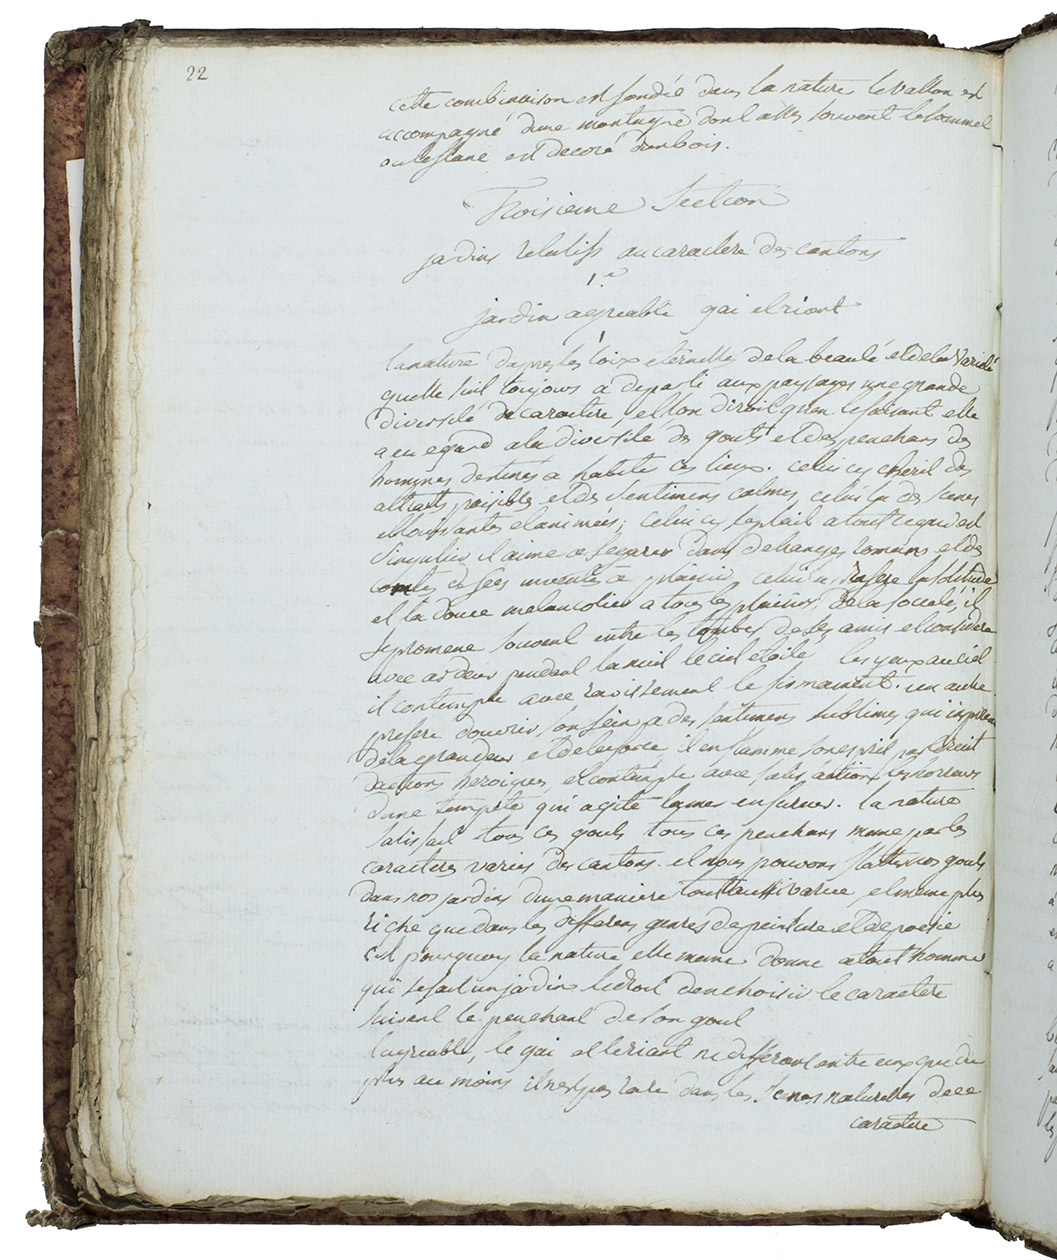 22
cette combinaison est fondée dans la nature le vallon est
accompagné dune montagne dont asses souvent le sommet
ou le flanc est decoré dun bois.
Troisieme Section
jardins relatifs au caractere des cantons
1.e
jardin agreable gai et riant
la nature dapres les loix eternelles de la beauté et de la varieté
quelle suit toujours a departi aux paysages une grande
diversité de caractere, et lon diroit quen le faisant elle
a eu egard a la diversité des gouts et des penchans des
hommes destinés a habiter ces lieux. celui cy cherit des
attraits paisibles et des sentimens calmes, celui la des scenes
et animées; celui cy se plait a tout ce qui est
singulier il aime a segarer dans detranges romans et des
contes de fées inventés a plaisir, celui la prefere la solitude
et la douce melancolie a tous les plaisirs de la societé, il
se promene souvent entre les tombes de ses amis et considere
avec ardeur pendant la nuit le ciel etoilé les yeux au ciel
il contemple avec ravissement le firmament. un autre
prefere douvrir son sein a des sentimens sublimes qui inspirent
de la grandeur et de la force, il enflamme son esprit par
daction heroiques, et contemple avec satisfaction les horreurs
dune tempete qui agite la mer en fureur. la nature
satisfait tous ces gouts tous ces penchans meme par les
caracteres variés des cantons. et nous pouvons flatter nos gouts
dans nos jardins dune maniere tout aussi variée, et meme plus
riche que dans les differens genres de peinture et de poesie
cest pourquoy la nature elle meme donne a tout homme
qui se fait un jardin le droit den choisir le caractere
suivant le penchant de son gout
lagreable, le gai et le riant ne different entre eux que du
plus au moins il nest pas rare dans les scenes naturelles de ce
caractere